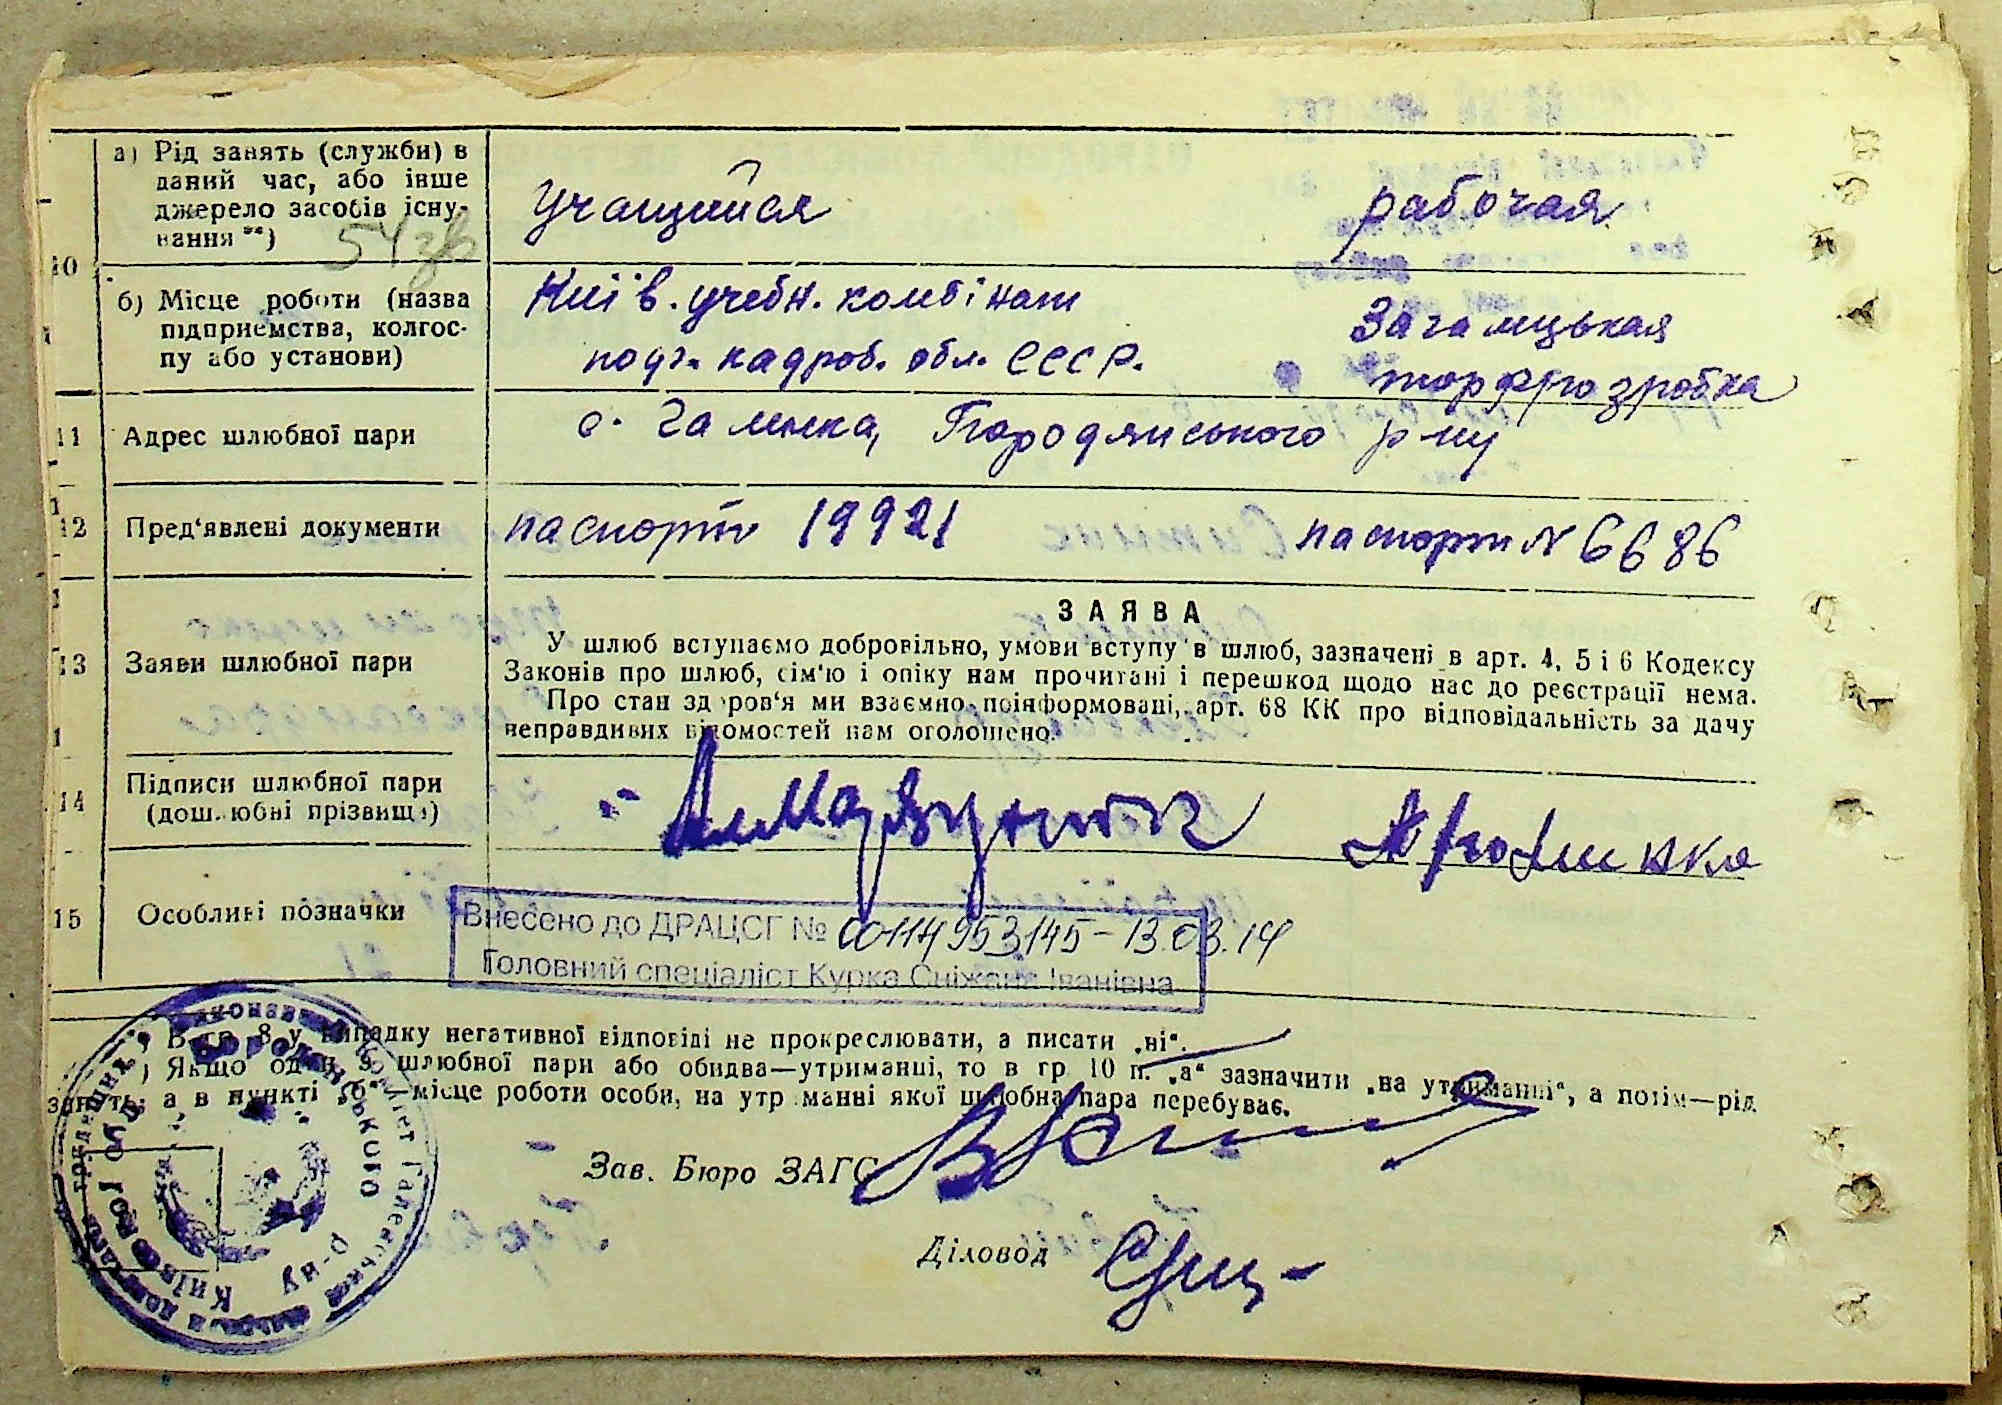 а) Рід занять (служби) в
даний час, або інше
джерело засобів існу-
вання **)
54 зв
учащийся
рабочая
10
б) Місце роботи (назва
підприємства, колгос-
пу або установи)
Київ. учебн. комбінат
подг. кадров. обл. СССР.
Загальцькая
торфрозробка
11
Адрес шлюбної пари
с. Галинка, Бородянського р-ну
12
Пред‘явлені документи
паспорт 19921
паспорт № 6686
13
Заяви шлюбної пари
ЗАЯВА
У шлюб вступаємо добровільно, умови вступу в шлюб, зазначені в арт. 4, 5 і 6 Кодексу
Законів про шлюб, сім‘ю і опіку нам прочитані і перешкод щодо нас до реєстрації нема.
Про стан здоров‘я ми взаємно поінформовані, арт. 68 КК про відповідальність за дачу
неправдивих відомостей нам оголошено.
14
Підписи шлюбної пари
(дошлюбні прізвища)
15
Особливі позначки
Внесено до ДРАЦСГ № 00114953145 – 13.03.14
Головний спеціаліст Курка Сніжана Іванівна
) В гр. 8 у випадку негативної відповіді не прокреслювати, а писати „ні“.
) Якщо один з шлюбної пари або обидва—утриманці, то в гр 10 п. „а“ зазначити „на утриманні“, а потім—рід
занять, а в пункті „б“ місце роботи особи, на утриманні якої шлюбна пара перебуває.
Зав. Бюро ЗАГС
Діловод
Бородянського р-ну Київської